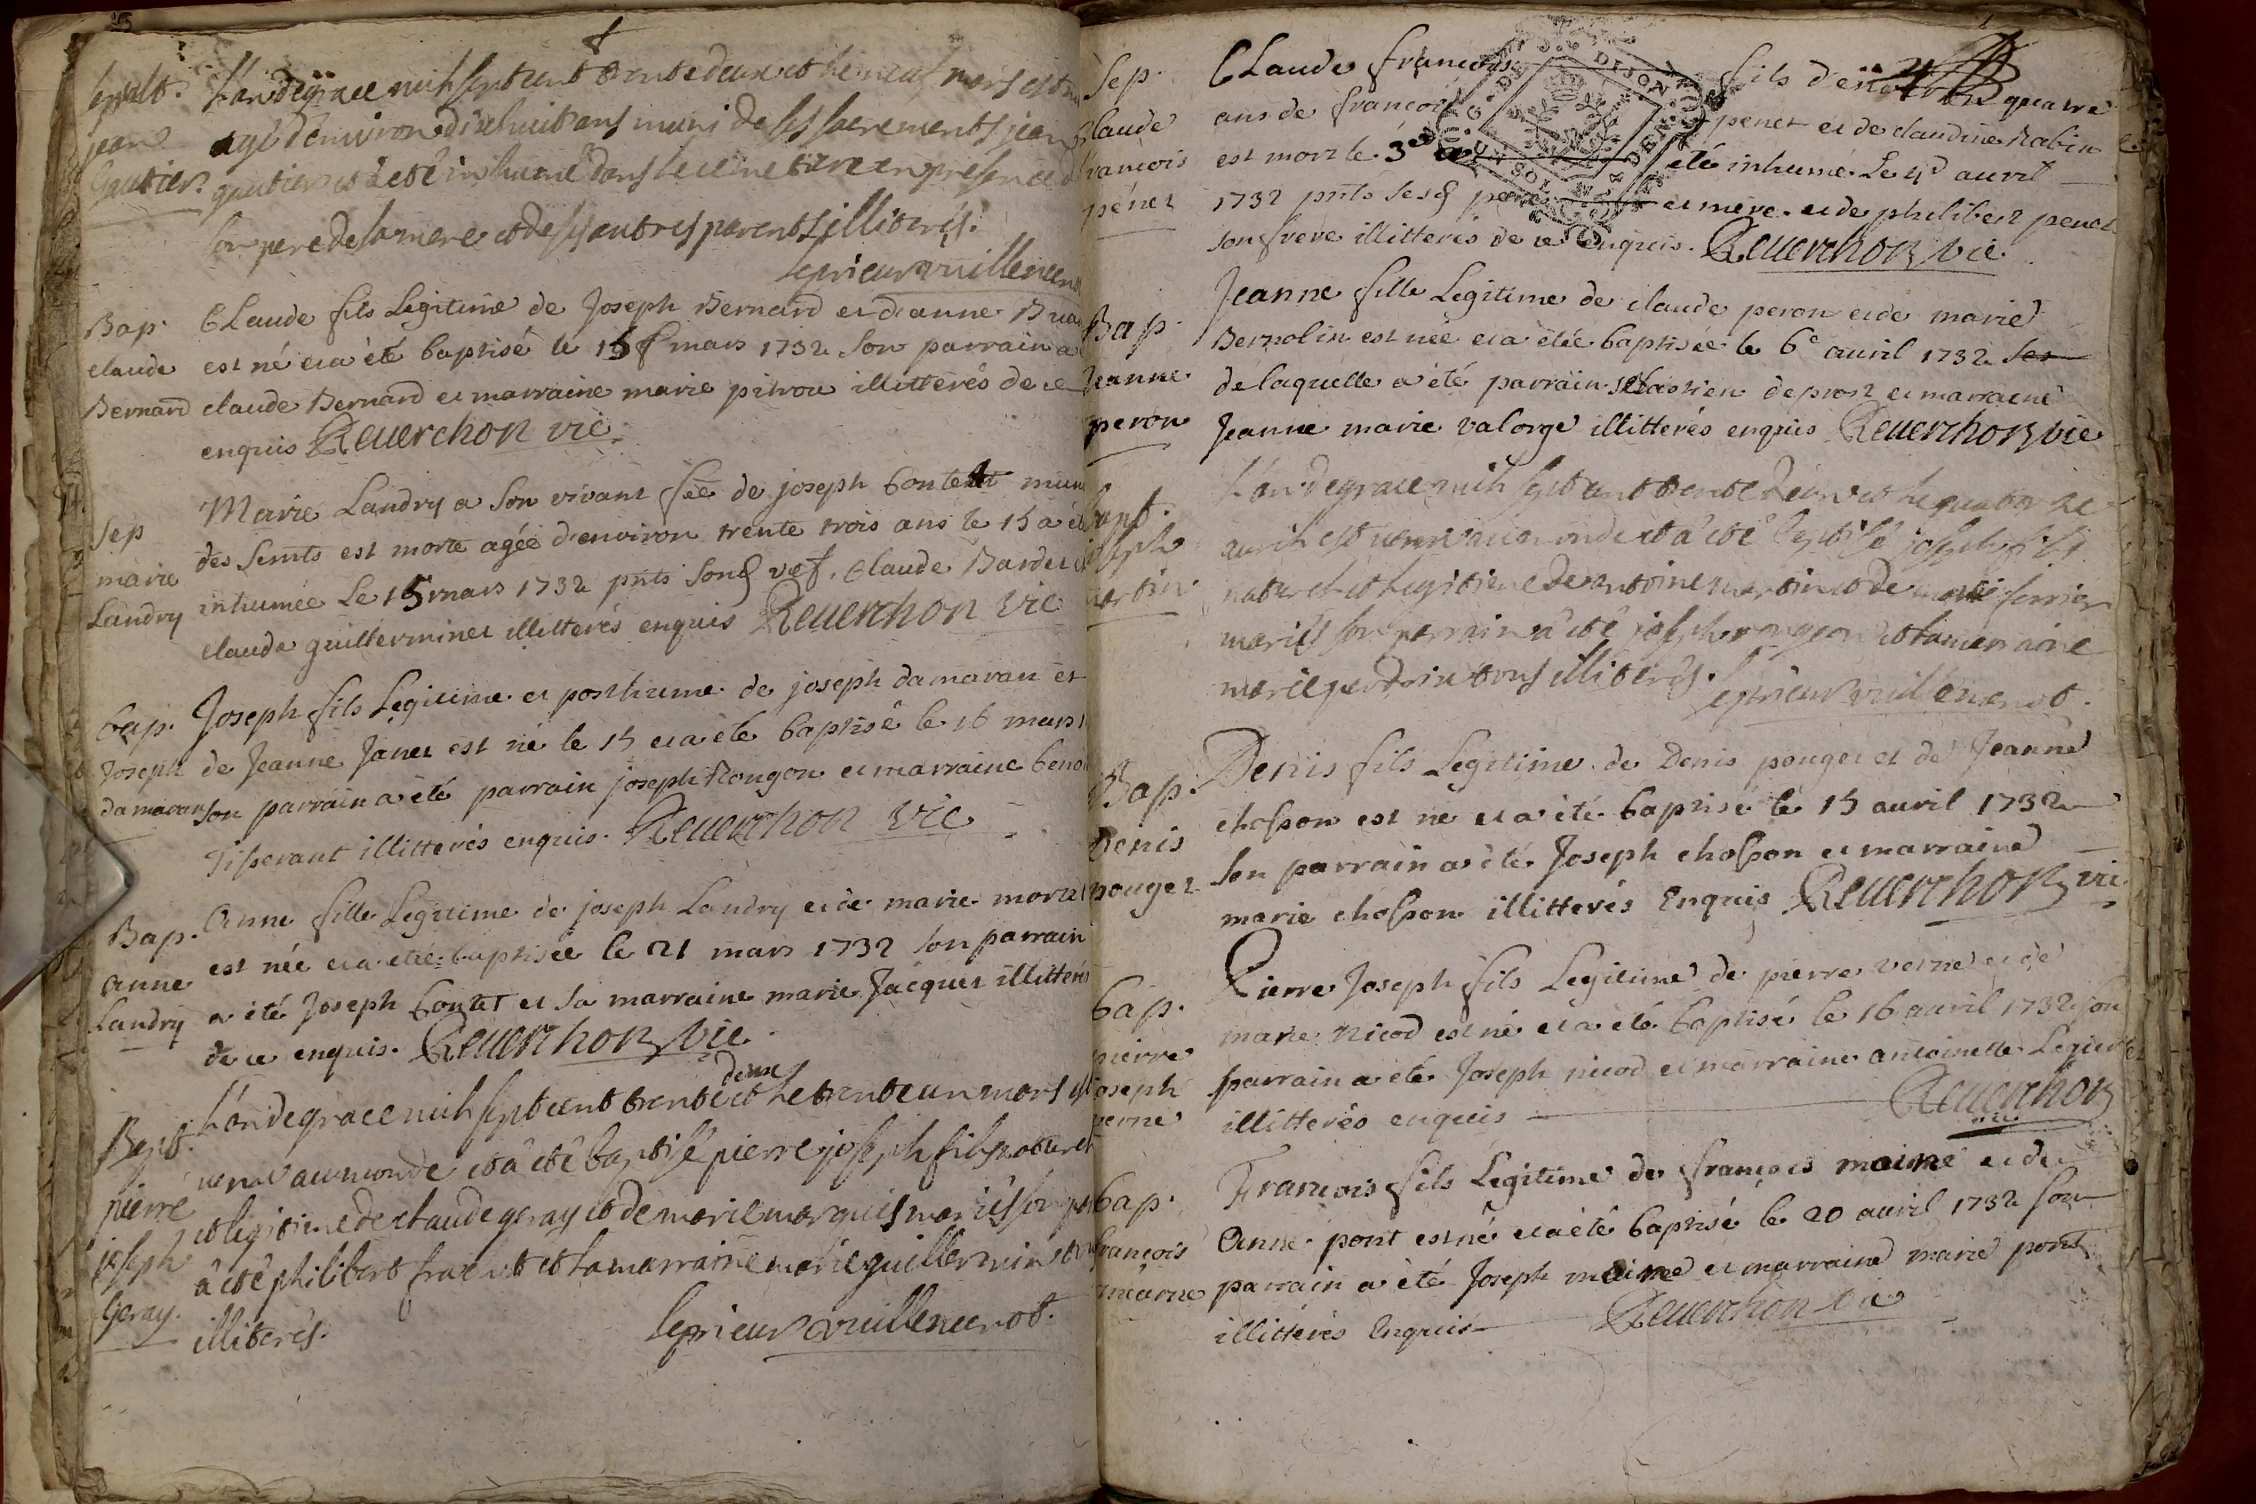 sepult.
jean
Gautier.
L'an de grace mil sept cent trente deux et le neuf mars est
agé d'environ dix huit ans muni de ses sacrements jean
gautier et a été inhumé dans le cimetiere en présence
son pere de sa mere et de ses autres parents illiterés.
le prieur vuillemenot
Bap.
claude
Bernard
Claude fils Legitime de Joseph Bernard et d'anne
est né et a été baptisé le 15 mars 1732 son parrain a
claude Bernard et marraine marie pitrou illitterés de ce
enquis Reverchon vic.
Sep
marie
Landry
Marie Landry a son vivant fée de joseph Contet
des semts est morte agée d'environ trente trois ans le 15 a
inhumée Le 15 mars 1732 pnts sond vef. claude Bardet
claude guillerminet illitterés enquis Reverchon vic
bap.
Joseph
damavan
Joseph fils Legitime et posthume de joseph damavan et
de Jeanne Janet est né le 15 et a été baptisé le 16 mars
son parrain a été parrain joseph Rougon et marraine
Tisserant illitterés enquis. Reverchon vic
Bap.
anne
Landry
Anne fille Legitime de joseph Landry et de marie
est née et a étée baptisée le 21 mars 1732 son parrain
a été Joseph Contet et sa marraine marie Jacquet illitterés
de ce enquis. Reverchon vic.
Bapt.
pierre
joseph
Geray.
deux
L'an de grace mil sept cent trente et le trente un mars est
venu au monde et a été baptisé pierre joseph fils naturel
et legitime de claude geray et de marie marquis mariés son
a été philibert et sa marraine marie guillermin
illiterés. le prieur vuillemenot.
Sep.
claude
françois
penet
Claude françois fils d'en quatre
ans de françois penet et de claudine Rabin
est mort le 3e été inhumé Le 4e avril
1732 pnts sesd pere et mere et de philibert penet
son frere illitterés de ce enquis. Reverchon vic.
Bap.
Jeanne
peron
Jeanne fille Legitime de claude peron et de marie
Bernolin est née et a étée baptisée le 6e avril 1732
de laquelle a été parrain sebastien deprost et marraine
Jeanne marie valorge illitterés enquis Reverchon vic
bapt.
joseph
martin
L'an de grace mil sept cent trente deux et le quatorze
avril est venu au monde et a été baptisé joseph fils
naturel et legitime de antoine martin et de marie
mariés son parrain a été joseph rougeon et sa marraine
marie perdrix tous illiterés. le prieur vuillemenot.
Bap.
Denis
pouget
Denis fils Legitime de Denis pouget et de Jeanne
chosson est né et a été baptisé le 15 avril 1732
son parrain a été Joseph chosson et marraine
marie chosson illitterés Enquis Reverchon vic
bap.
pierre
joseph
verne
Pierre Joseph fils Legitime de pierre verne et de
marie nicod est né et a été baptisé le 16 avril 1732 son
parrain a été Joseph nicod et marraine antoinette
illitterés enquis Reverchon
bap.
françois
maine
François fils Legitime de françois maine et de
Anne pont est né et a été baptisé le 20 avril 1732 son
parrain a été Joseph maine et marraine marie pont
illitterés Enquis Reverchon vic